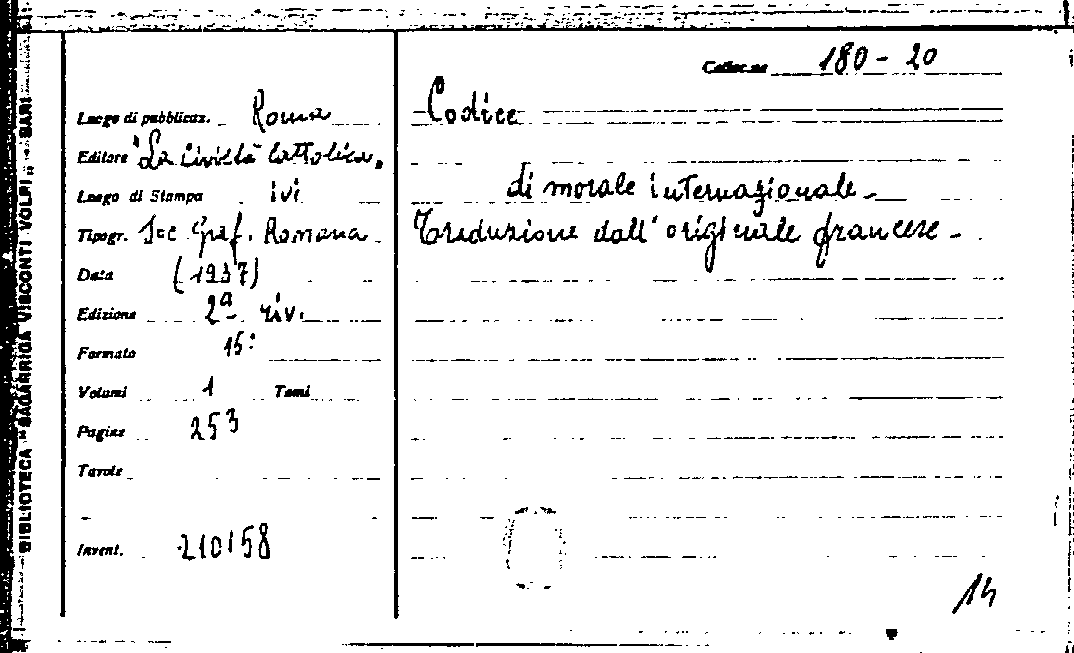 BIBLIOTECA "SAGARRIGA VISCONTI VOLPI" - BARI
Colloc.ne 180-20
Luogo di pubblicaz. Roma
Editore "La Civiltà Cattolica"
Luogo di Stampa ivi
Tipogr. Soc Graf. Romana
Data (1937)
Edizione 2ª riv.
Formato 15:
Volumi 1 Tomi
Pagine 253
Tavole
Invent. 210158
Codice
di morale internazionale -
Traduzione dall'originale francese -
14